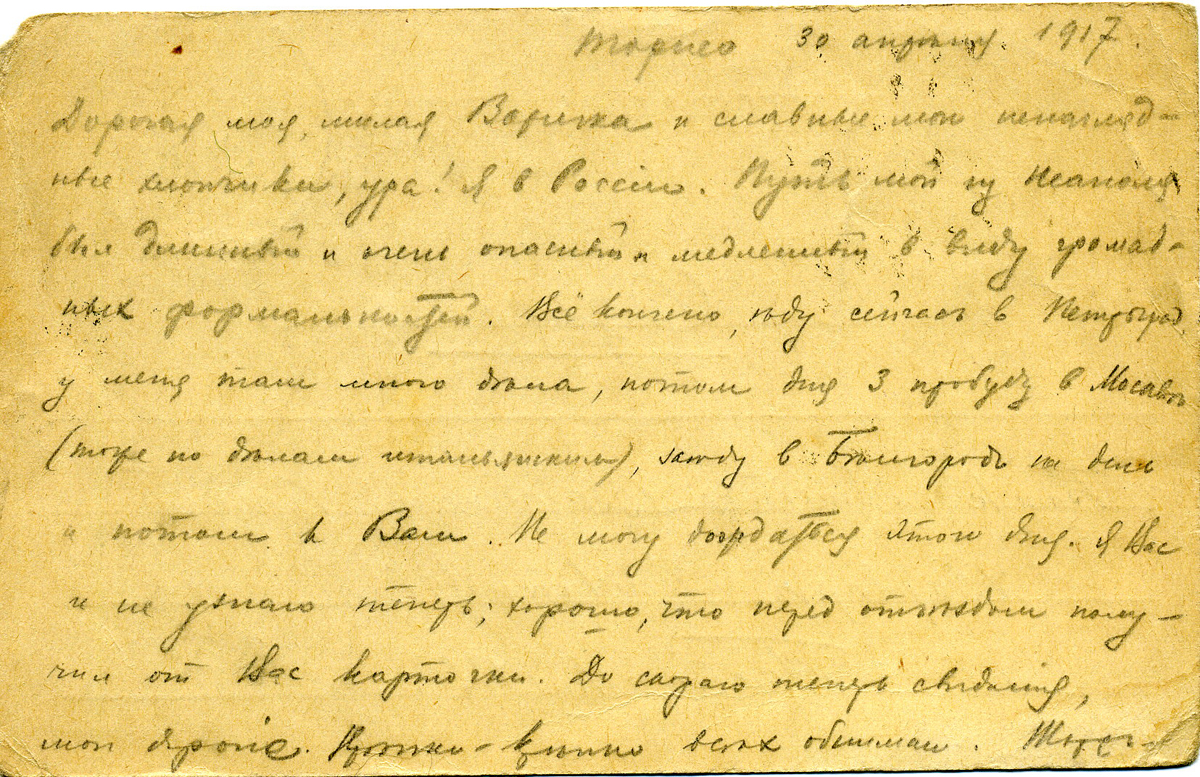 Торнео 30 апреля 1917.
Дорогая моя, милая Варичка и славные мои ненагляд-
ные хлопчики, ура! Я в Россіи. Путь мой из Неаполя
был длинный и очень опасный и медленный в виду громад-
ных формальностей. Всё кончено, ѣду сейчас в Петроград
у меня там много дѣла, потом дня 3 пробуду в Москвѣ
(тоже по дѣлам итальянским), заѣду в Бѣлгородъ на день
и потом к Вам. Не могу дождаться этого дня. Я Вас
и не узнаю теперь; хорошо, что перед отъѣздом полу-
чил от Вас карточки. До скораго теперь свиданія,
мои дорогіе. Крѣпко-крѣпко всѣх обнимаю.